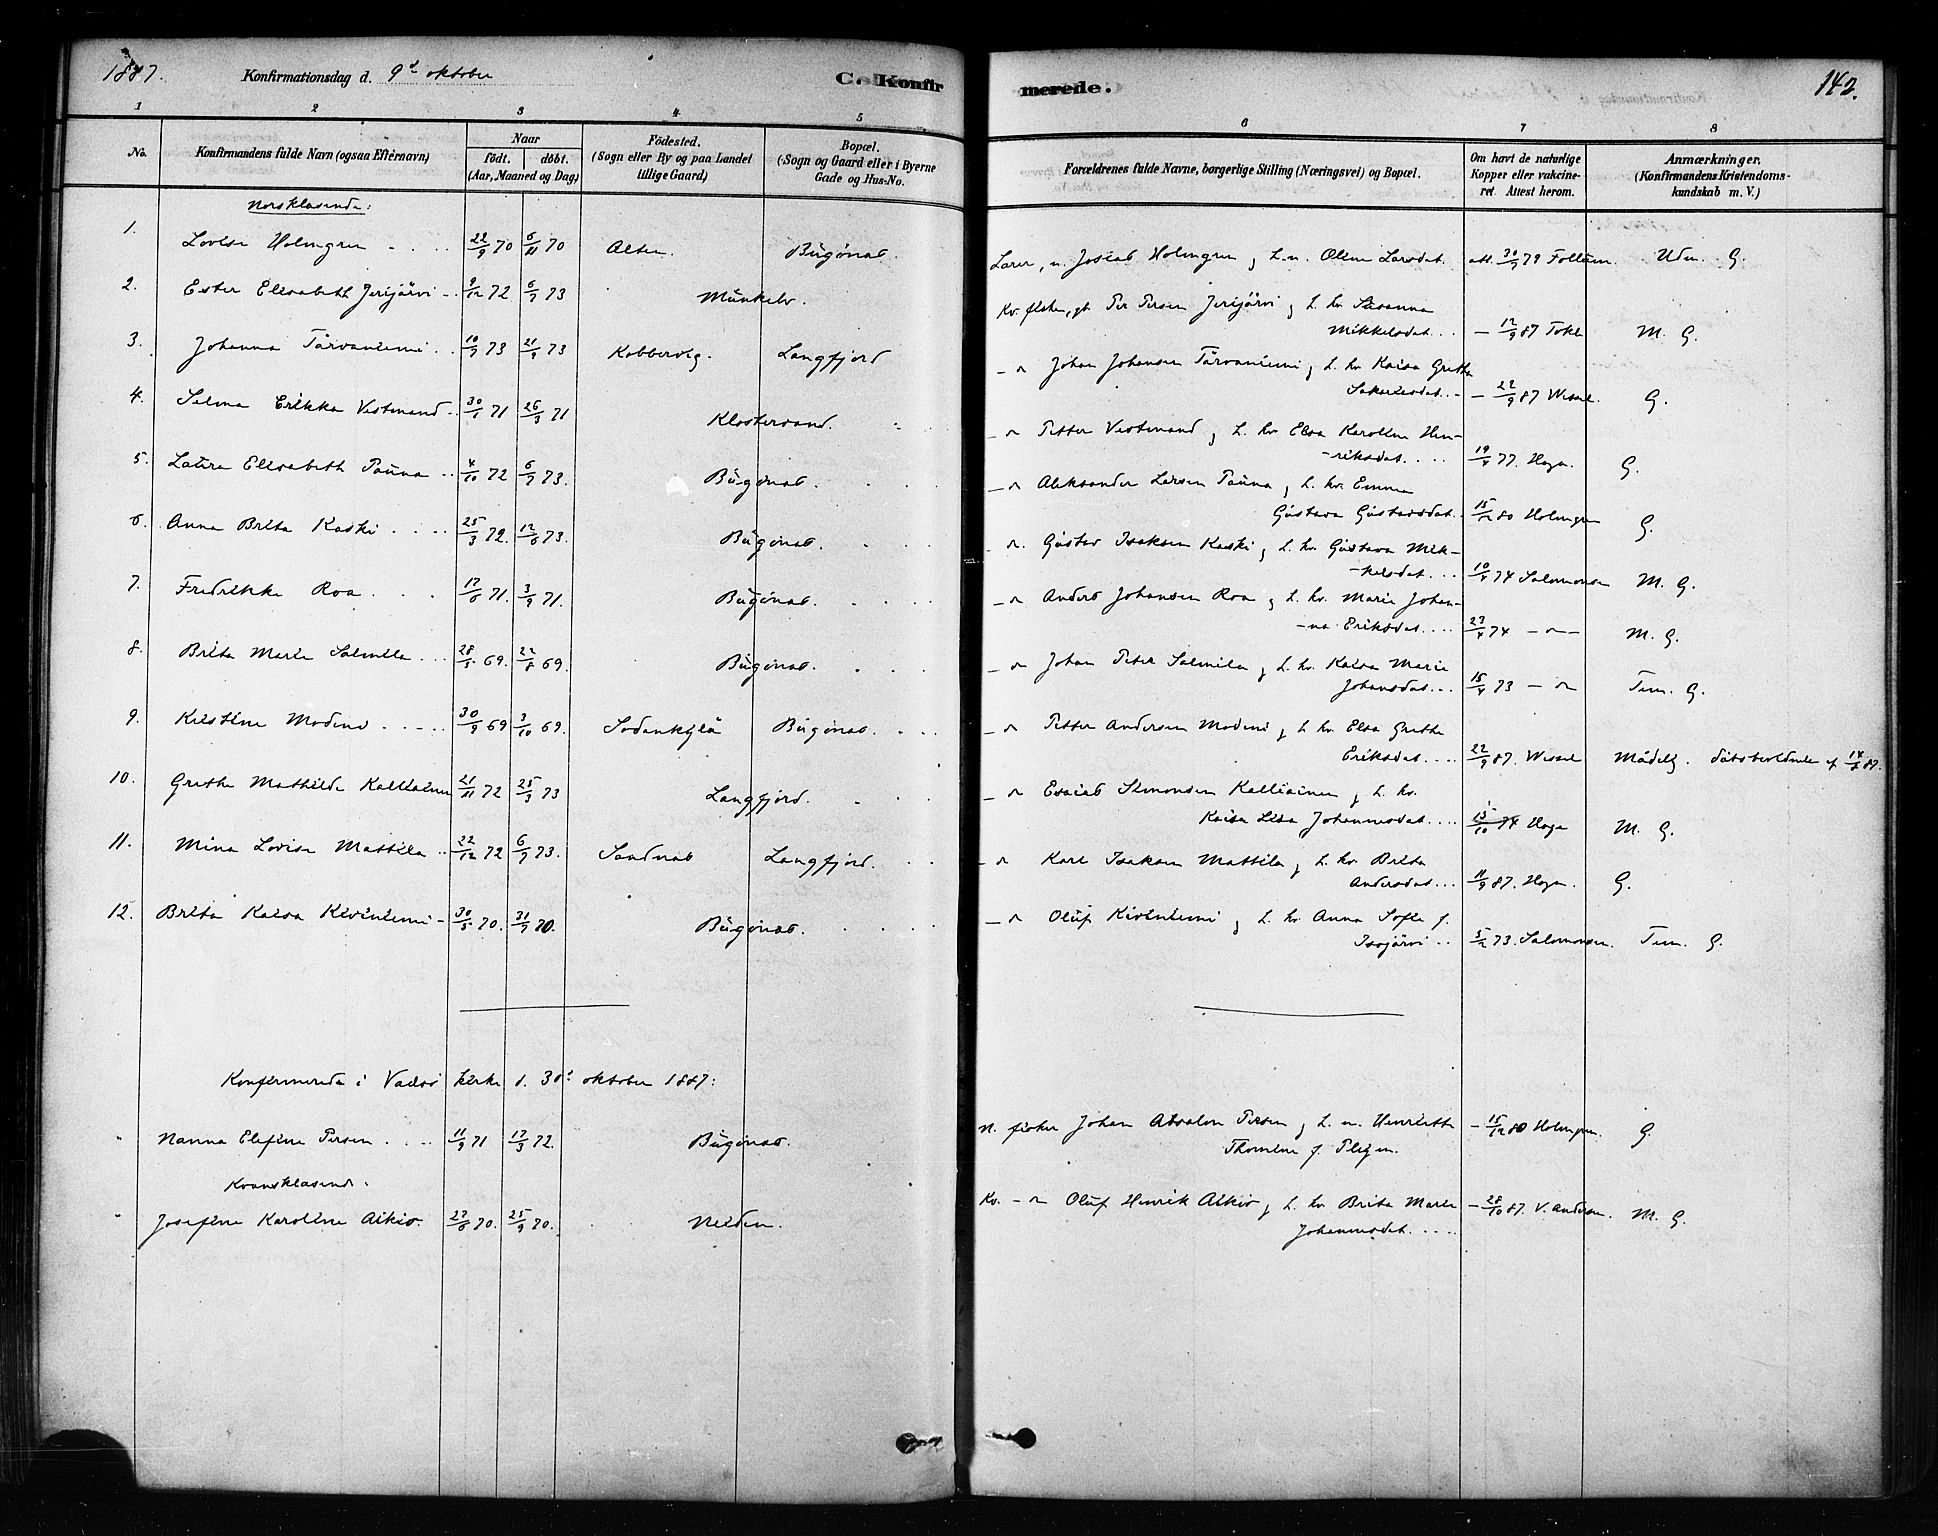 1887. Konfirmationsdag d. 9d oktober C. Konfirmerede. 142.
1 2 3 4 5 6 7 8
No. Konfirmandens fulde Navn (ogsaa Efternavn) Naar födt. döbt. (Aar, Maaned og Dag) Födested. (Sogn eller By og paa Landet tillige Gaard) Bopæl. (Sogn og Gaard eller i Byerne Gade og Hus-No. Forældrenes fulde Navne, borgerlige Stilling (Næringsvei) og Bopæl. Om havt de naturlige Kopper eller vakcineret. Attest herom. Anmærkninger. (Konfirmandens Kristendomskundskab m. V.)
Norsklæsende:
1. Lovise Holmgren 22/9 70 6/11 70 Alten. Bugönæs. Lærer, n. Josias Holmgren og h. n. Oline Larsdat. att. 30/7 79 Udm. G.
2. Ester Elisabeth Jerijärvi 9/12 72 6/7 73 Munkelv. Kv. fisker, gb. Per Persen Jerijärvi og h. kv. Susanna
Mikkelsdat. - 12/9 87 M. G.
3. Johanna Tärvaniemi 10/7 73 21/9 73 Kobbervig. Langfjord Johan Johansen Tärvaniemi og h. kv. Kaisa Gretha
- 22/9 87 Wessel. G.
4. Selma Erikka Vestmand 30/1 71 26/3 71 Klostersand. Petter Vestmand og h. kv. Elsa Karoline Hen-
-riksdat. 19/4 77. Hagen. G.
5. Laura Elisabeth Pauna 4/10 72 6/7 73. Bugönæs. Aleksander Larsen Pauna og h. kv. Emma
Gustava Gustavsdat. 15/12 80 Holmgren G.
6. Anna Brita Koski 25/3 72. 12/6 73. Bugönæs. Gustav Isaksen Koski og h. kv. Gustava Mik-
-kelsdat. 10/4 74 Salomonsen M. G.
7. Fredrikke Roa 17/6 71. 3/9 71. Bugönæs. Anders Johansen Roa og h. kv. Marie Johan-
-na Eriksdat. 23/4 74 M. G.
8. Brita Marie Salmila 28/5 69. 22/8 69. Bugönæs. Johan Peter Salmila og h. kv. Kaisa Marie
Johansdat. 15/4 73 Tem. G.
9. Kristine Modeni 30/9 69 3/10 69. Sodankylä Bugönæs. Petter Andersen Modeni og h. kv. Elsa Gretha
Eriksdat. 22/9 87. Wessel Mådelig. 87.
10. Grethe Mathilde Kalliainen 21/11 72 25/3 73 Langfjord. Esaias Simonsen Kalliainen og h. kv.
Kaisa Lisa Johannesdat. 15/10 74 Hagen M. G.
11. Mina Lovise Mattila 22/12 72 6/7 73. Sandnæs Langfjord. Karl Isaksen Mattila og h. kv. Brita
Andersdat. 11/9 87. Hagen. G.
12. Brita Kaisa Kiviniemi 30/5 70. 31/7 70. Bugönæs. Oluf Kiviniemi og h. kv. Anna Sofie f.
Isojärvi 5/2 73. Salomonsen. Tem. G.
Konfirmerede i Vadsö kirke d. 30d oktober 1887:
" Nanna Elefine Persen 11/9 71 17/3 72. Bugönæs. N. fisker Johan Absalon Persen og h. n. Henriette - 15/12 80 Holmgren. G.
Thomine f.
Kvænsklæsende:
" Josefine Karoline Aikio 27/6 70. 25/9 70. Neiden. Kv. Oluf Henrik Aikio og h. kv. Brita Marie - 28/10 87. V. Andersen. M. G.
Johannesdat.